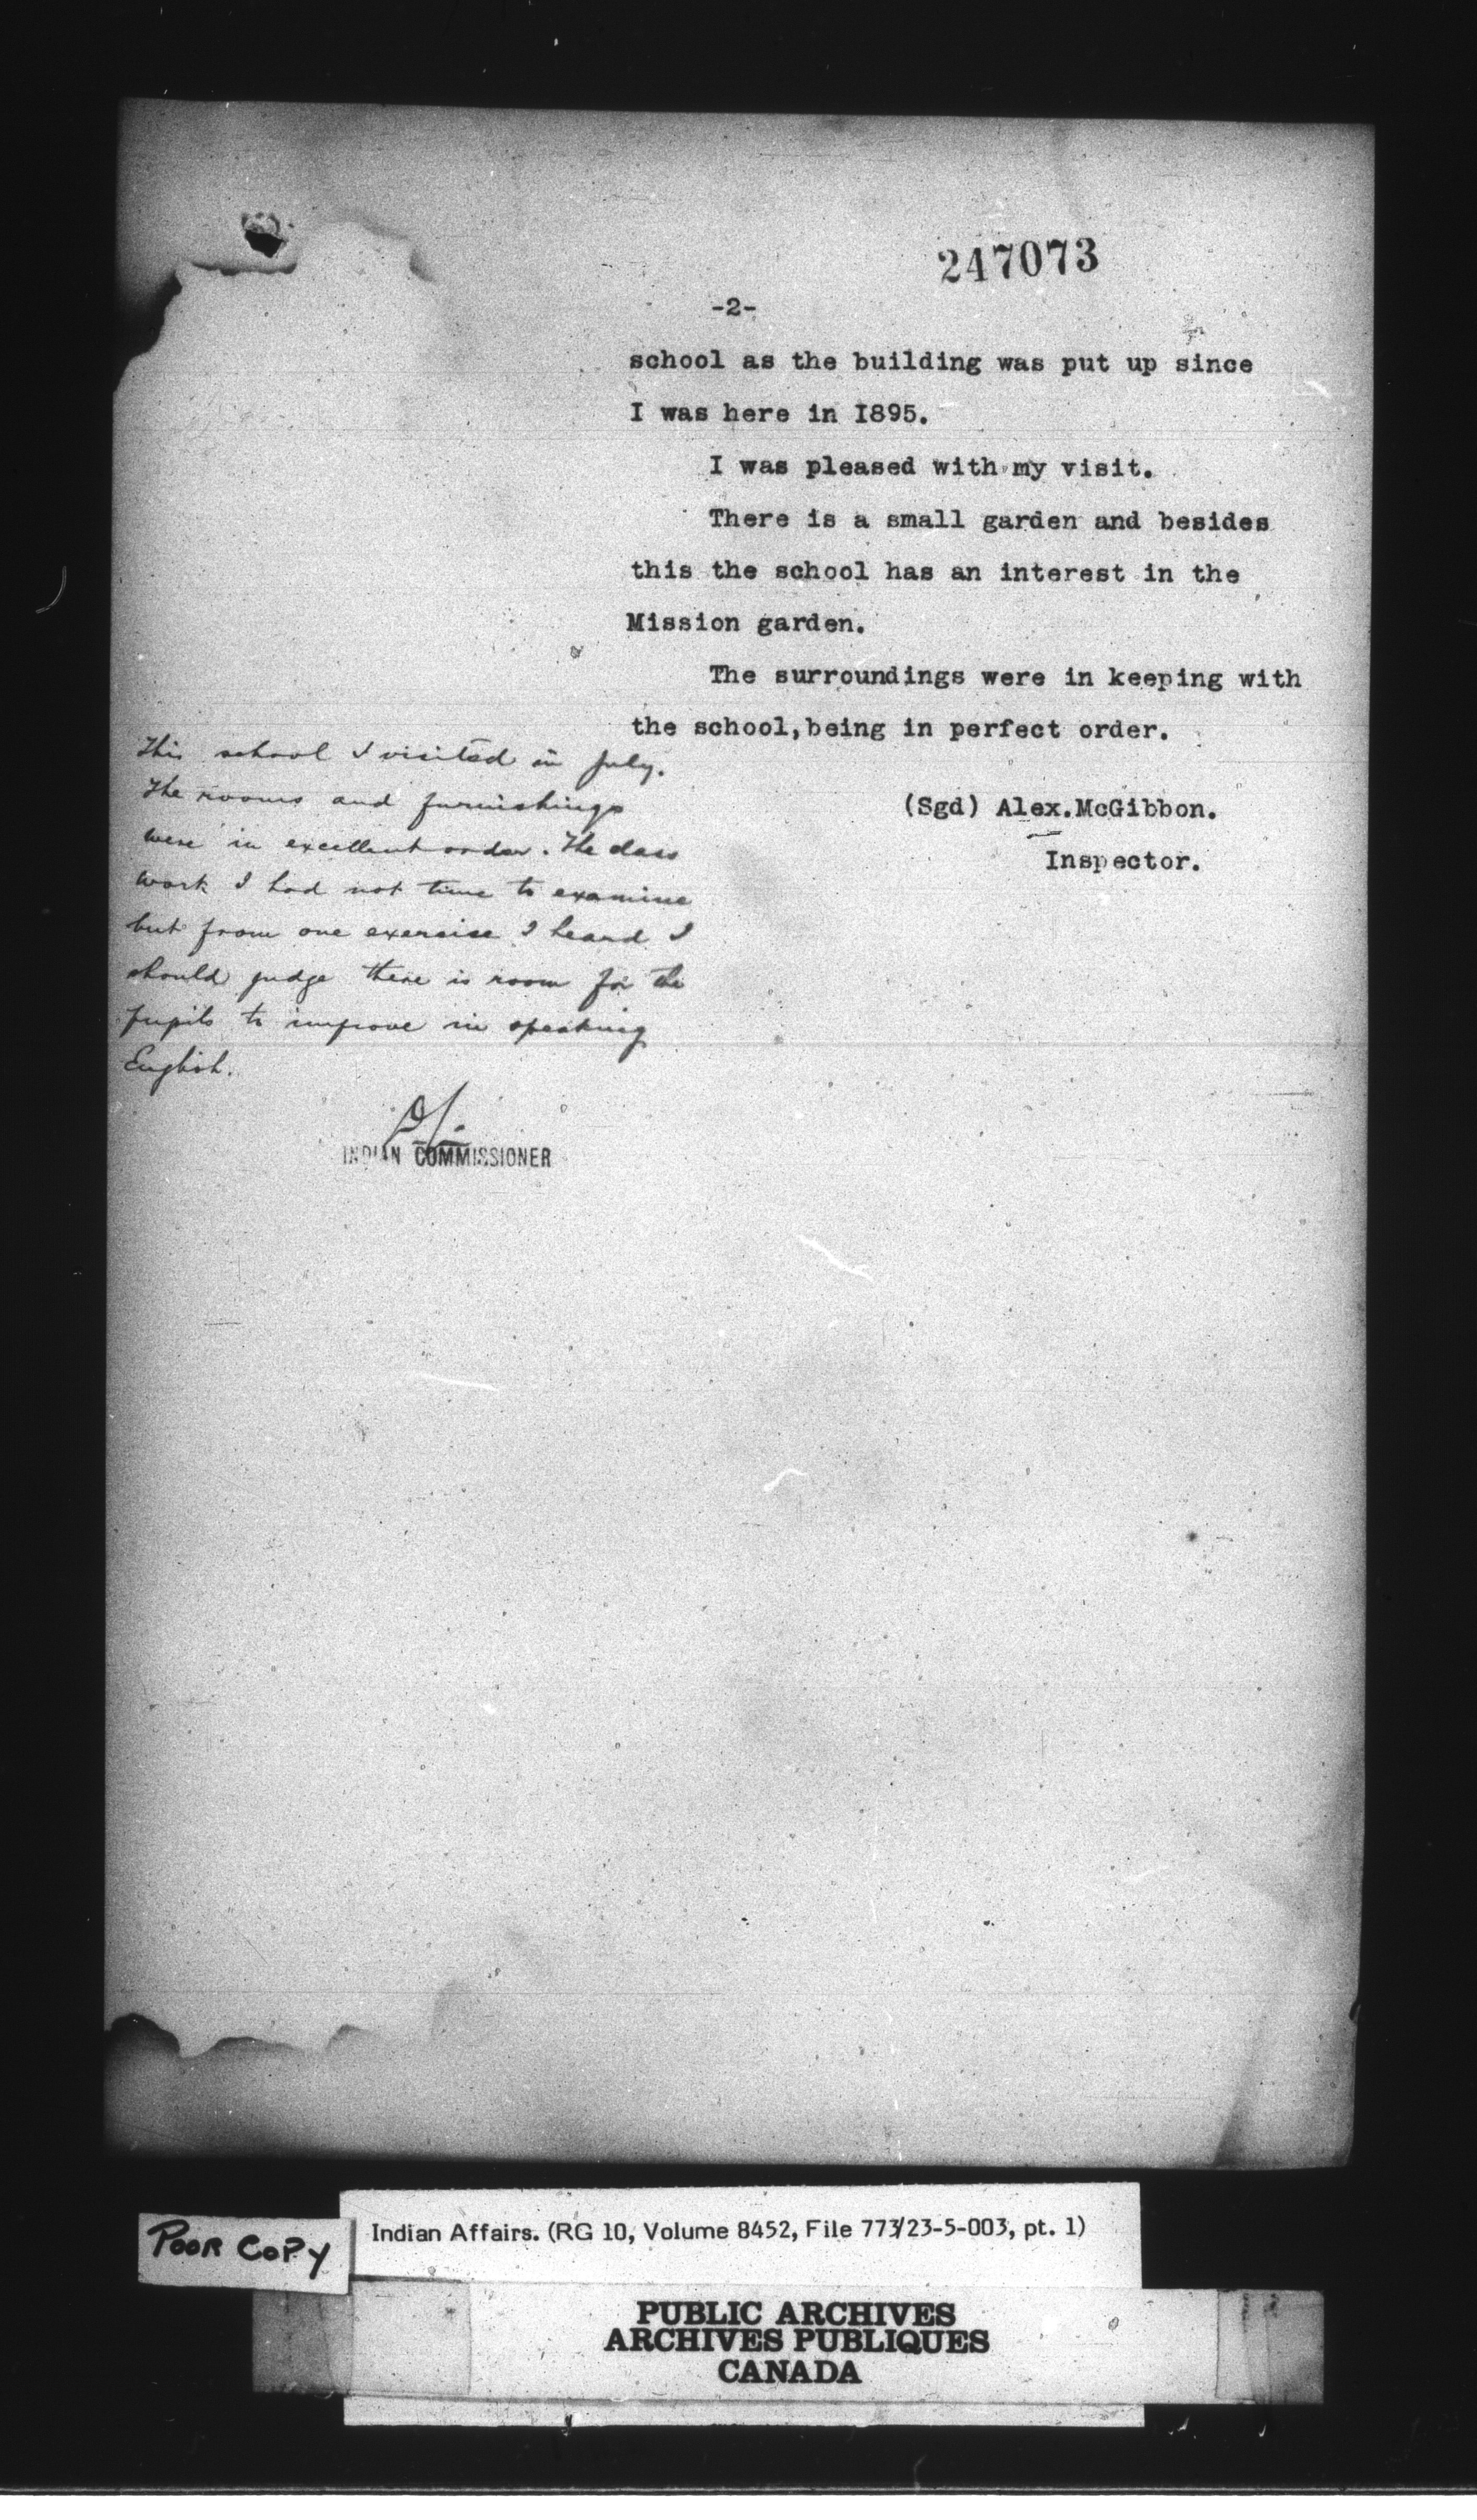 247073
-2-
school as the building was put up since
I was here in I895.
I was pleased with my visit.
There is a small garden and besides
this the school has an interest in the
Mission garden.
The surroundings were in keeping with
the school,being in perfect order.
(Sgd) Alex.McGibbon.
Inspector.
This school I visited in July.
The rooms and furnishings
were in excellent order. The class
work I had not time to examine
but from one exercise I heard I
should judge there is room for the
pupils to improve in speaking
English.
INDIAN COMMISSIONER
POOR COPY
Indian Affairs. (RG 10, Volume 8452, File 773/23-5-003, pt. 1)
PUBLIC ARCHIVES
ARCHIVES PUBLIQUES
CANADA